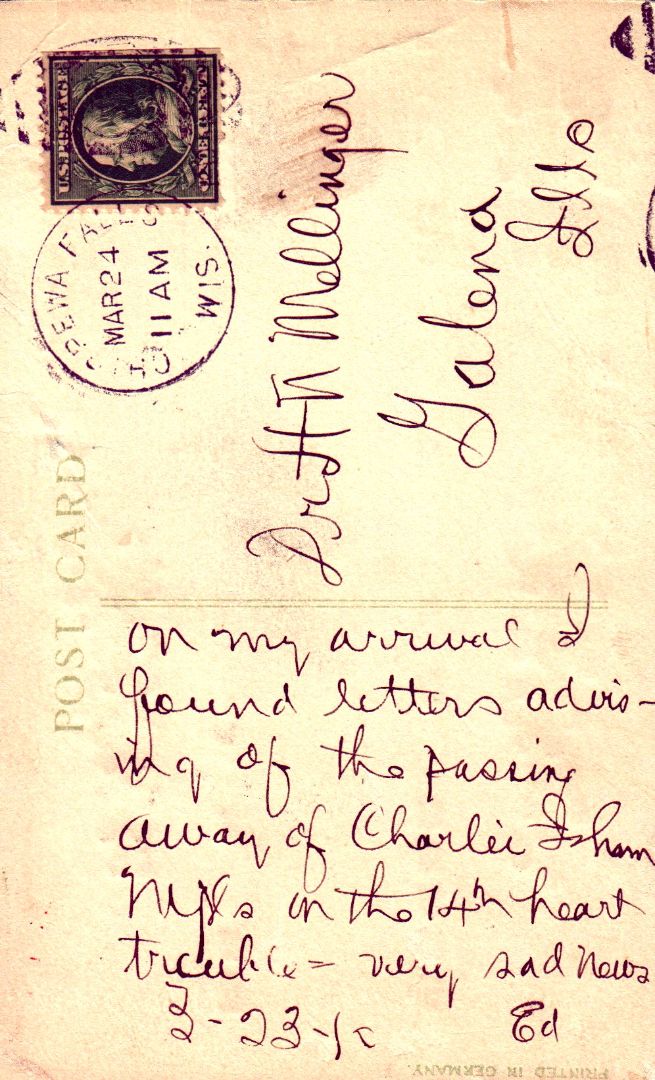 U.S. POSTAGE
CHIPPEWA FALLS
MAR 24
11 AM
WIS.
POST CARD
Dr H N Mellinger
Galena
Ills
on my arrival I
found letters advis-
ing of the passing
away of Charlie Isham
Mpls on the 14th heart
trouble = very sad news
3-23-
Ed
PRINTED IN GERMANY.